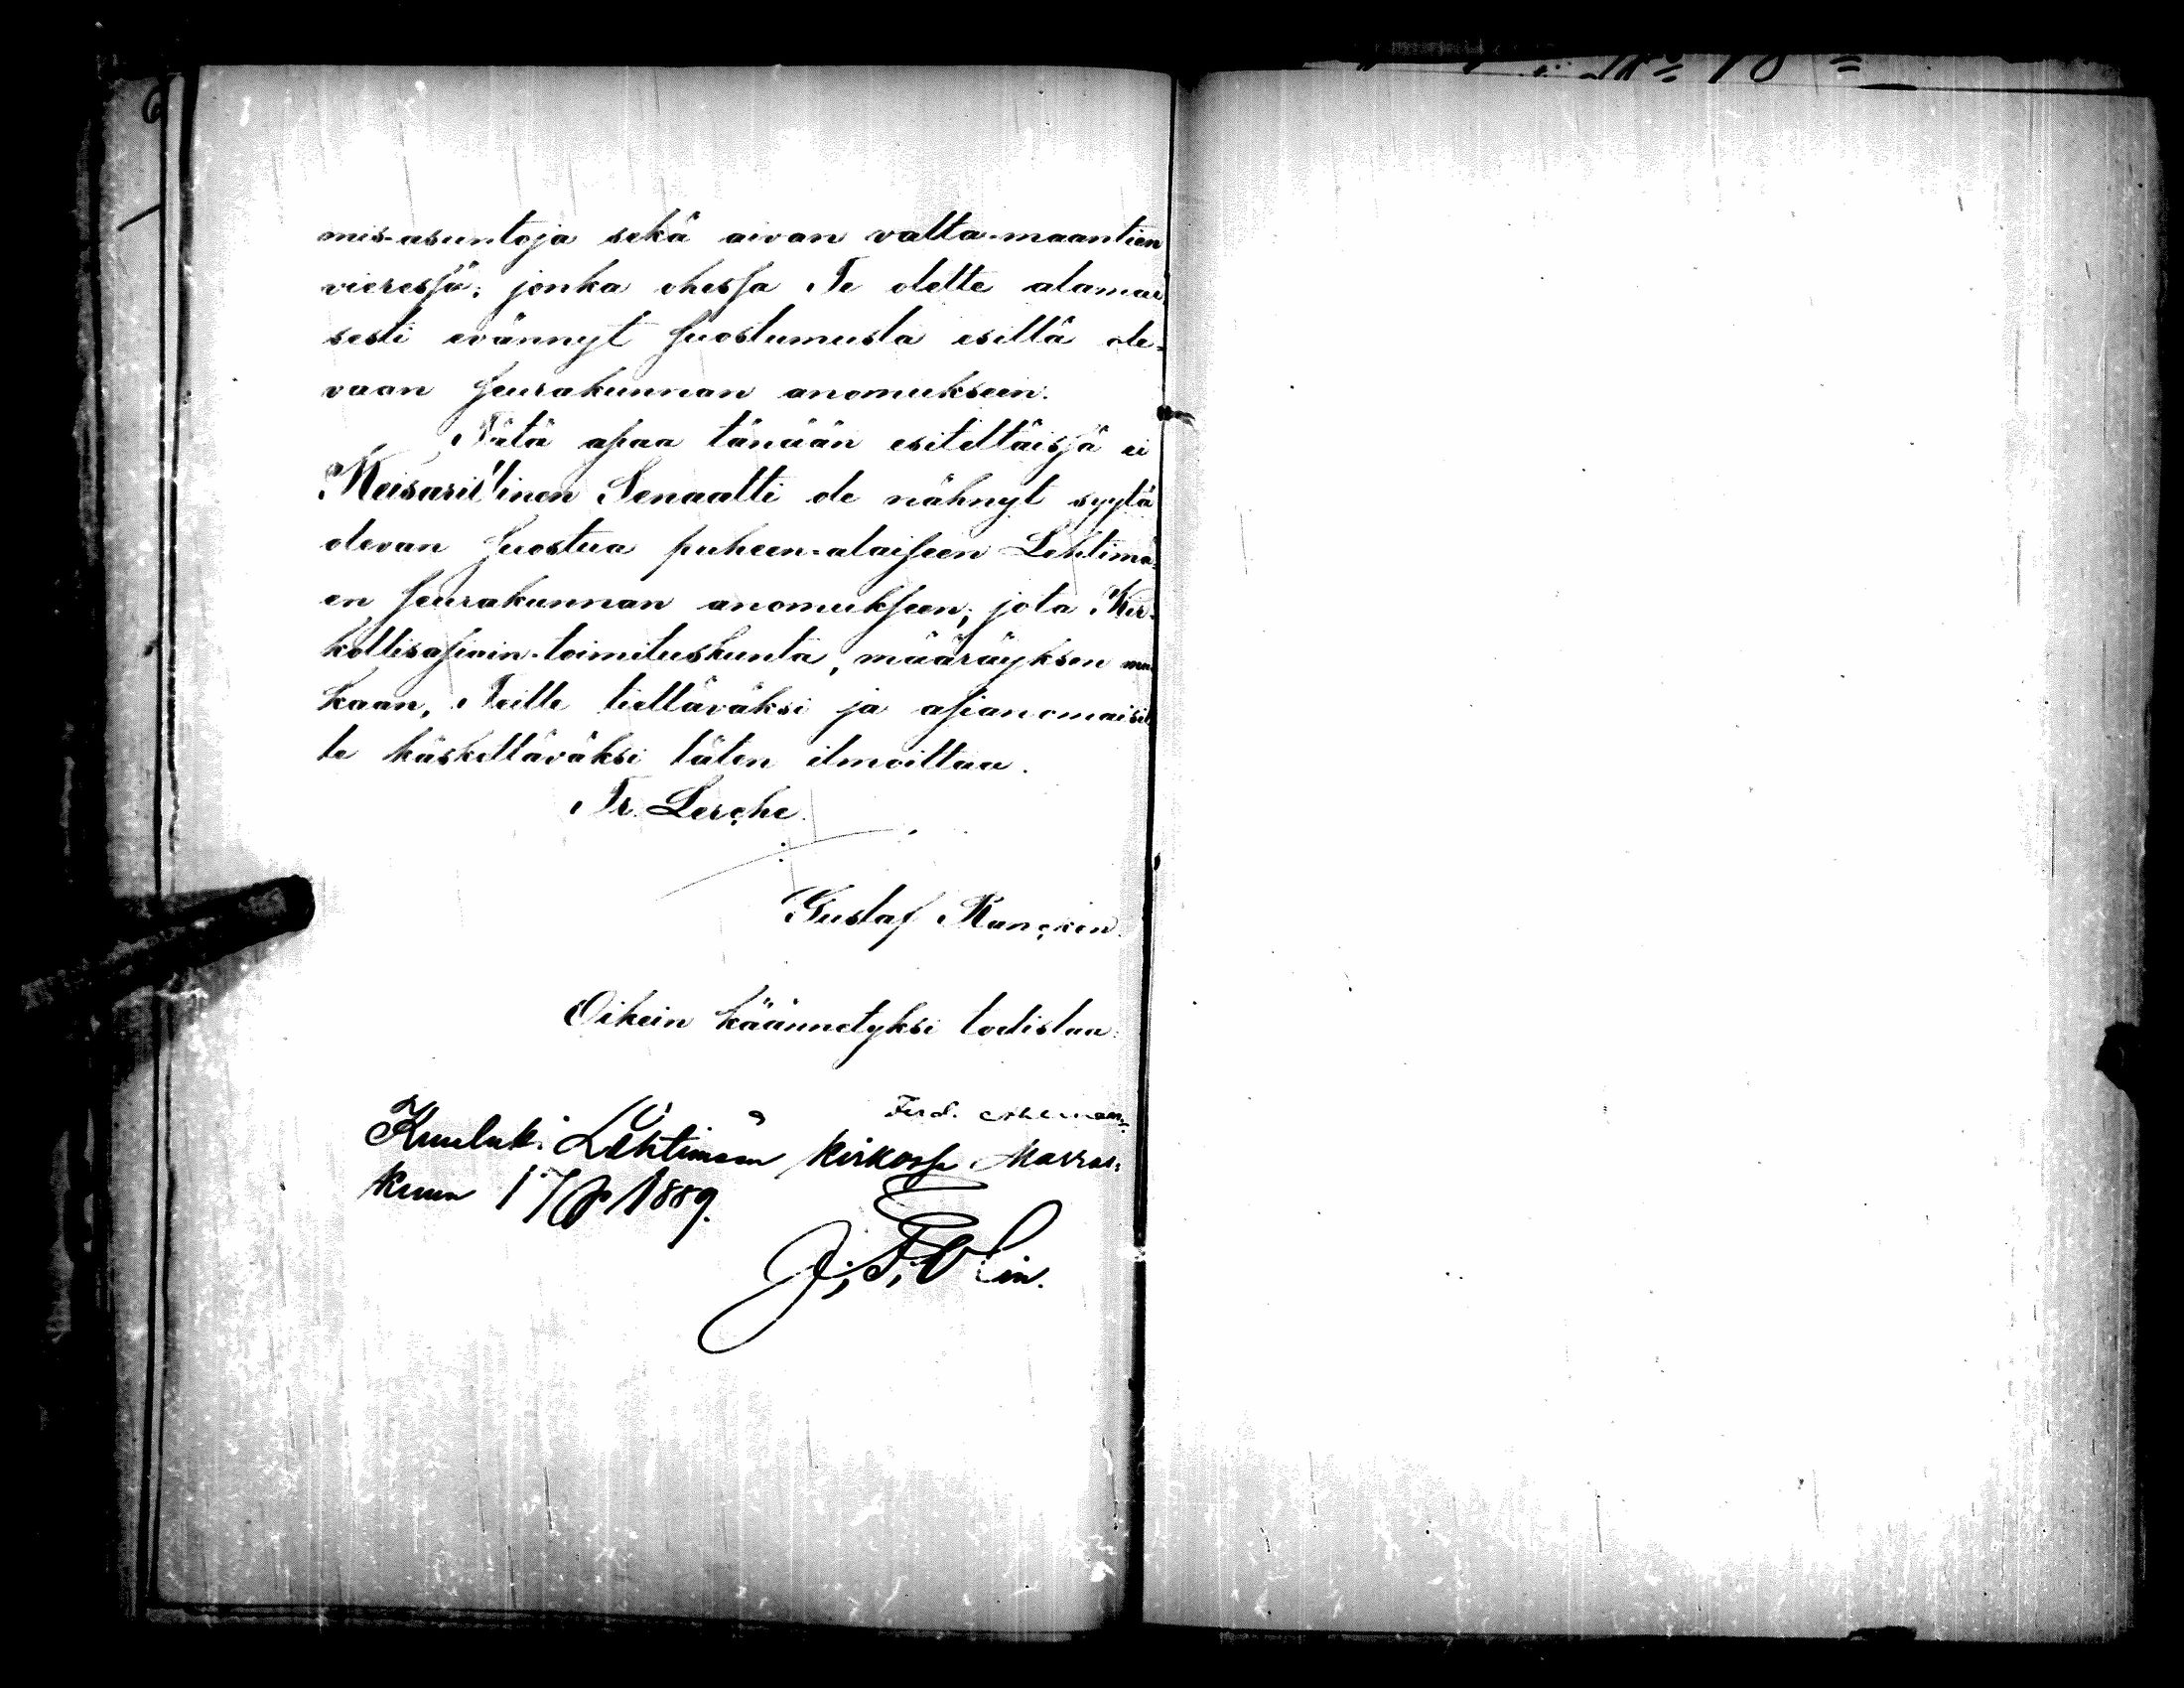 mis-asuntoja sekä aivan valta-maantien
vieressä; jonka ohessa Te olette alamai-
sesti evännyt suostumusta esillä ole-
vaan seurakunnan anomukseen.
Tätä asiaa tänään esiteltäissä ei
Keisarillinen Senaatti ole nähnyt syytä
olevan suostua puheen-alaiseen Lehtimä-
en seurakunnan anomukseen; jota Kir-
kollisasiain-toimituskunta, määräyksen mu-
kaan, Teille tiettäväksi ja asianomaisil-
le käskettäväksi täten ilmoittaa.
Fr. Lerche.
Gustaf Rancken.
Oikein käännetyksi todistaa:
Ferd.
Kuulut. Lehtimäen kirkossa Marras-
kuun 17 p 1889.